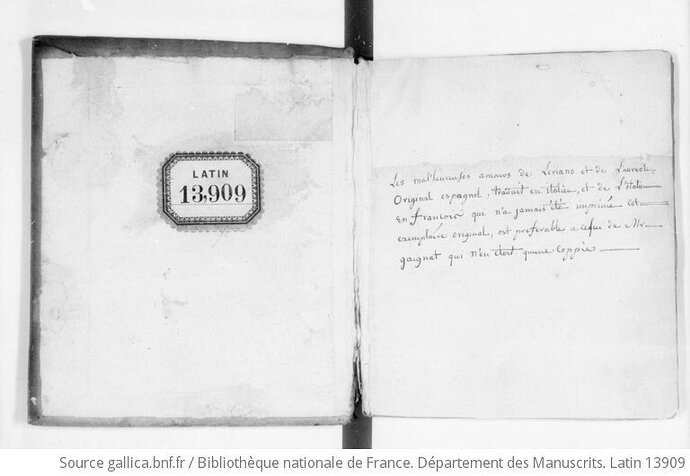 LATIN
13,909
Les malheureuses amours de Leriano et de Laureole
Original espagnol, traduit en italien, et de L'italien
En francois que n'a jamais été imprimé Cet
exemplaire original, est preferable a celui de Mr
gaignat qui n'en étoit qu'une Coppie
Source gallica.bnf.fr / Bibliothèque nationale de France. Département des Manuscrits. Latin 13909